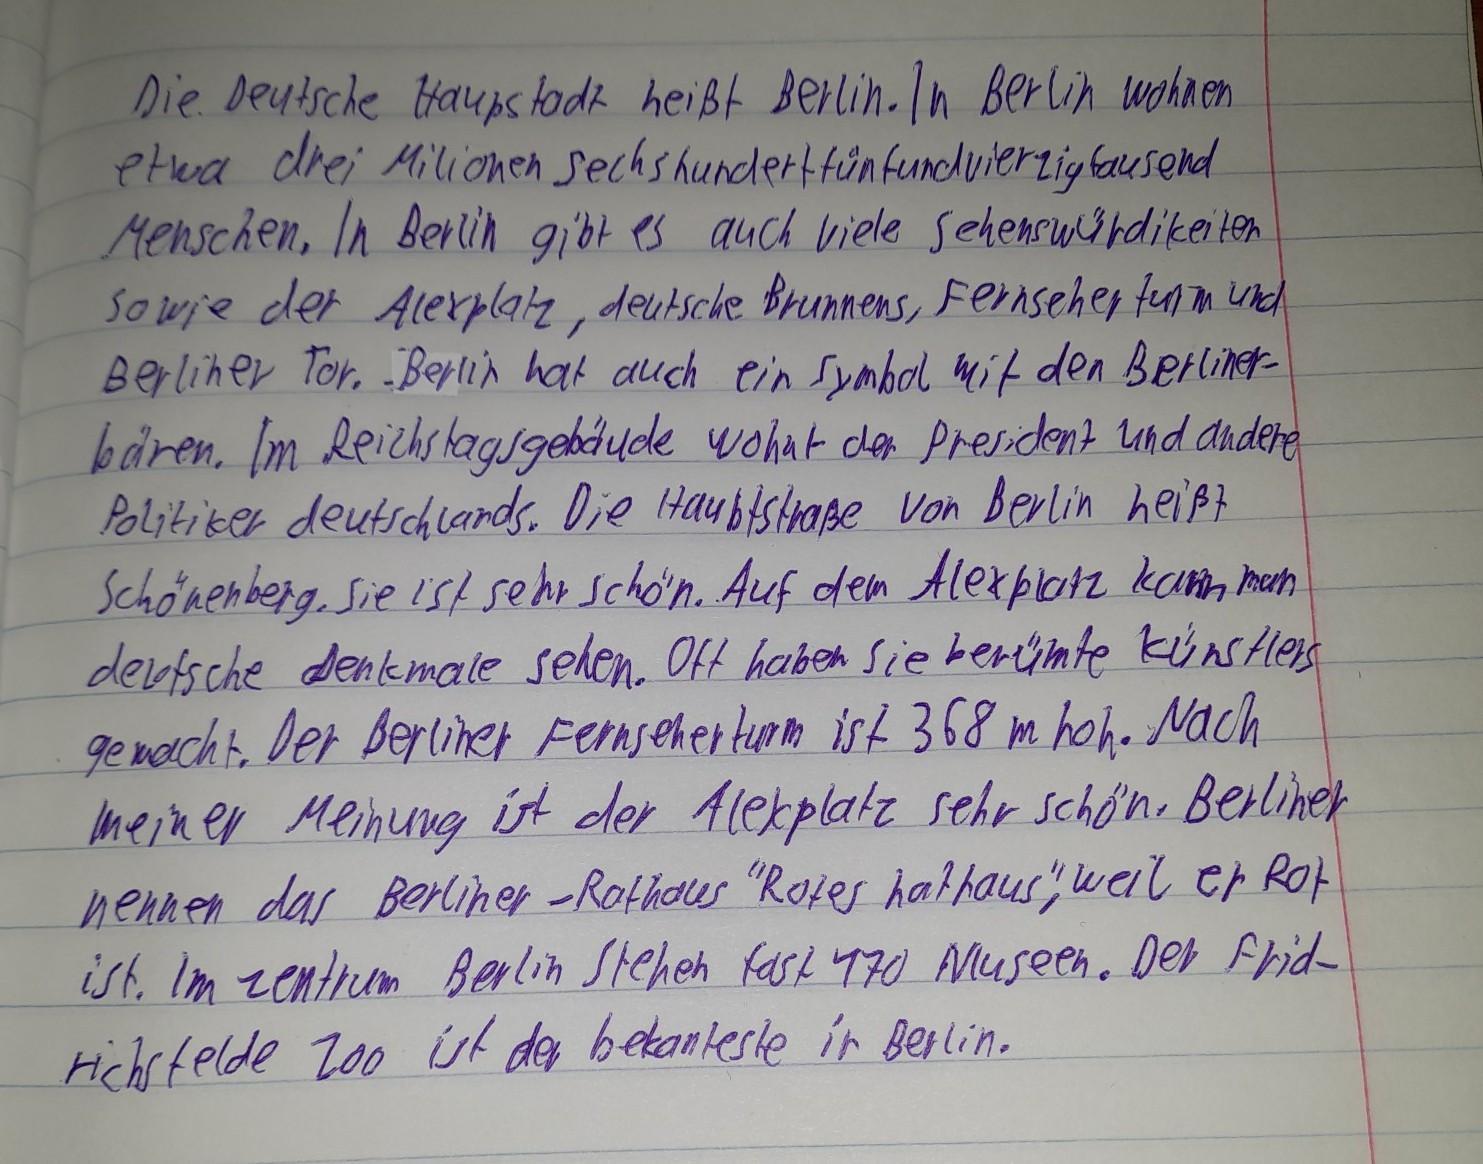 Die Deutsche Haupstadt heißt Berlin. In Berlin wohnen
etwa drei Milionen sechshundertfünfundvierzigtausend
Menschen. In Berlin gibt es auch viele Sehenswürdikeiten
sowie der Alexplatz, deutsche Brunnens, Fernseherturm und
Berliner Tor. Berlin hat auch ein Symbol mit den Berliner-
bären. Im Reichstagsgebäude wohnt der President und andere
Politiker deutschlands. Die Haubtstraße von Berlin heißt
Schönenberg. Sie ist sehr schön. Auf dem Alexplatz kann man
deutsche Denkmale sehen. Oft haben sie berümte Künstlers
gemacht. Der Berliner Fernseherturm ist 368 m hoh. Nach
meiner Meinung ist der Alexplatz sehr schön. Berliner
nennen das Berliner-Rathaus "Rotes hathaus", weil er Rot
ist. Im zentrum Berlin stehen fast 170 Museen. Der Frid-
richsfelde Zoo ist der bekanteste in Berlin.